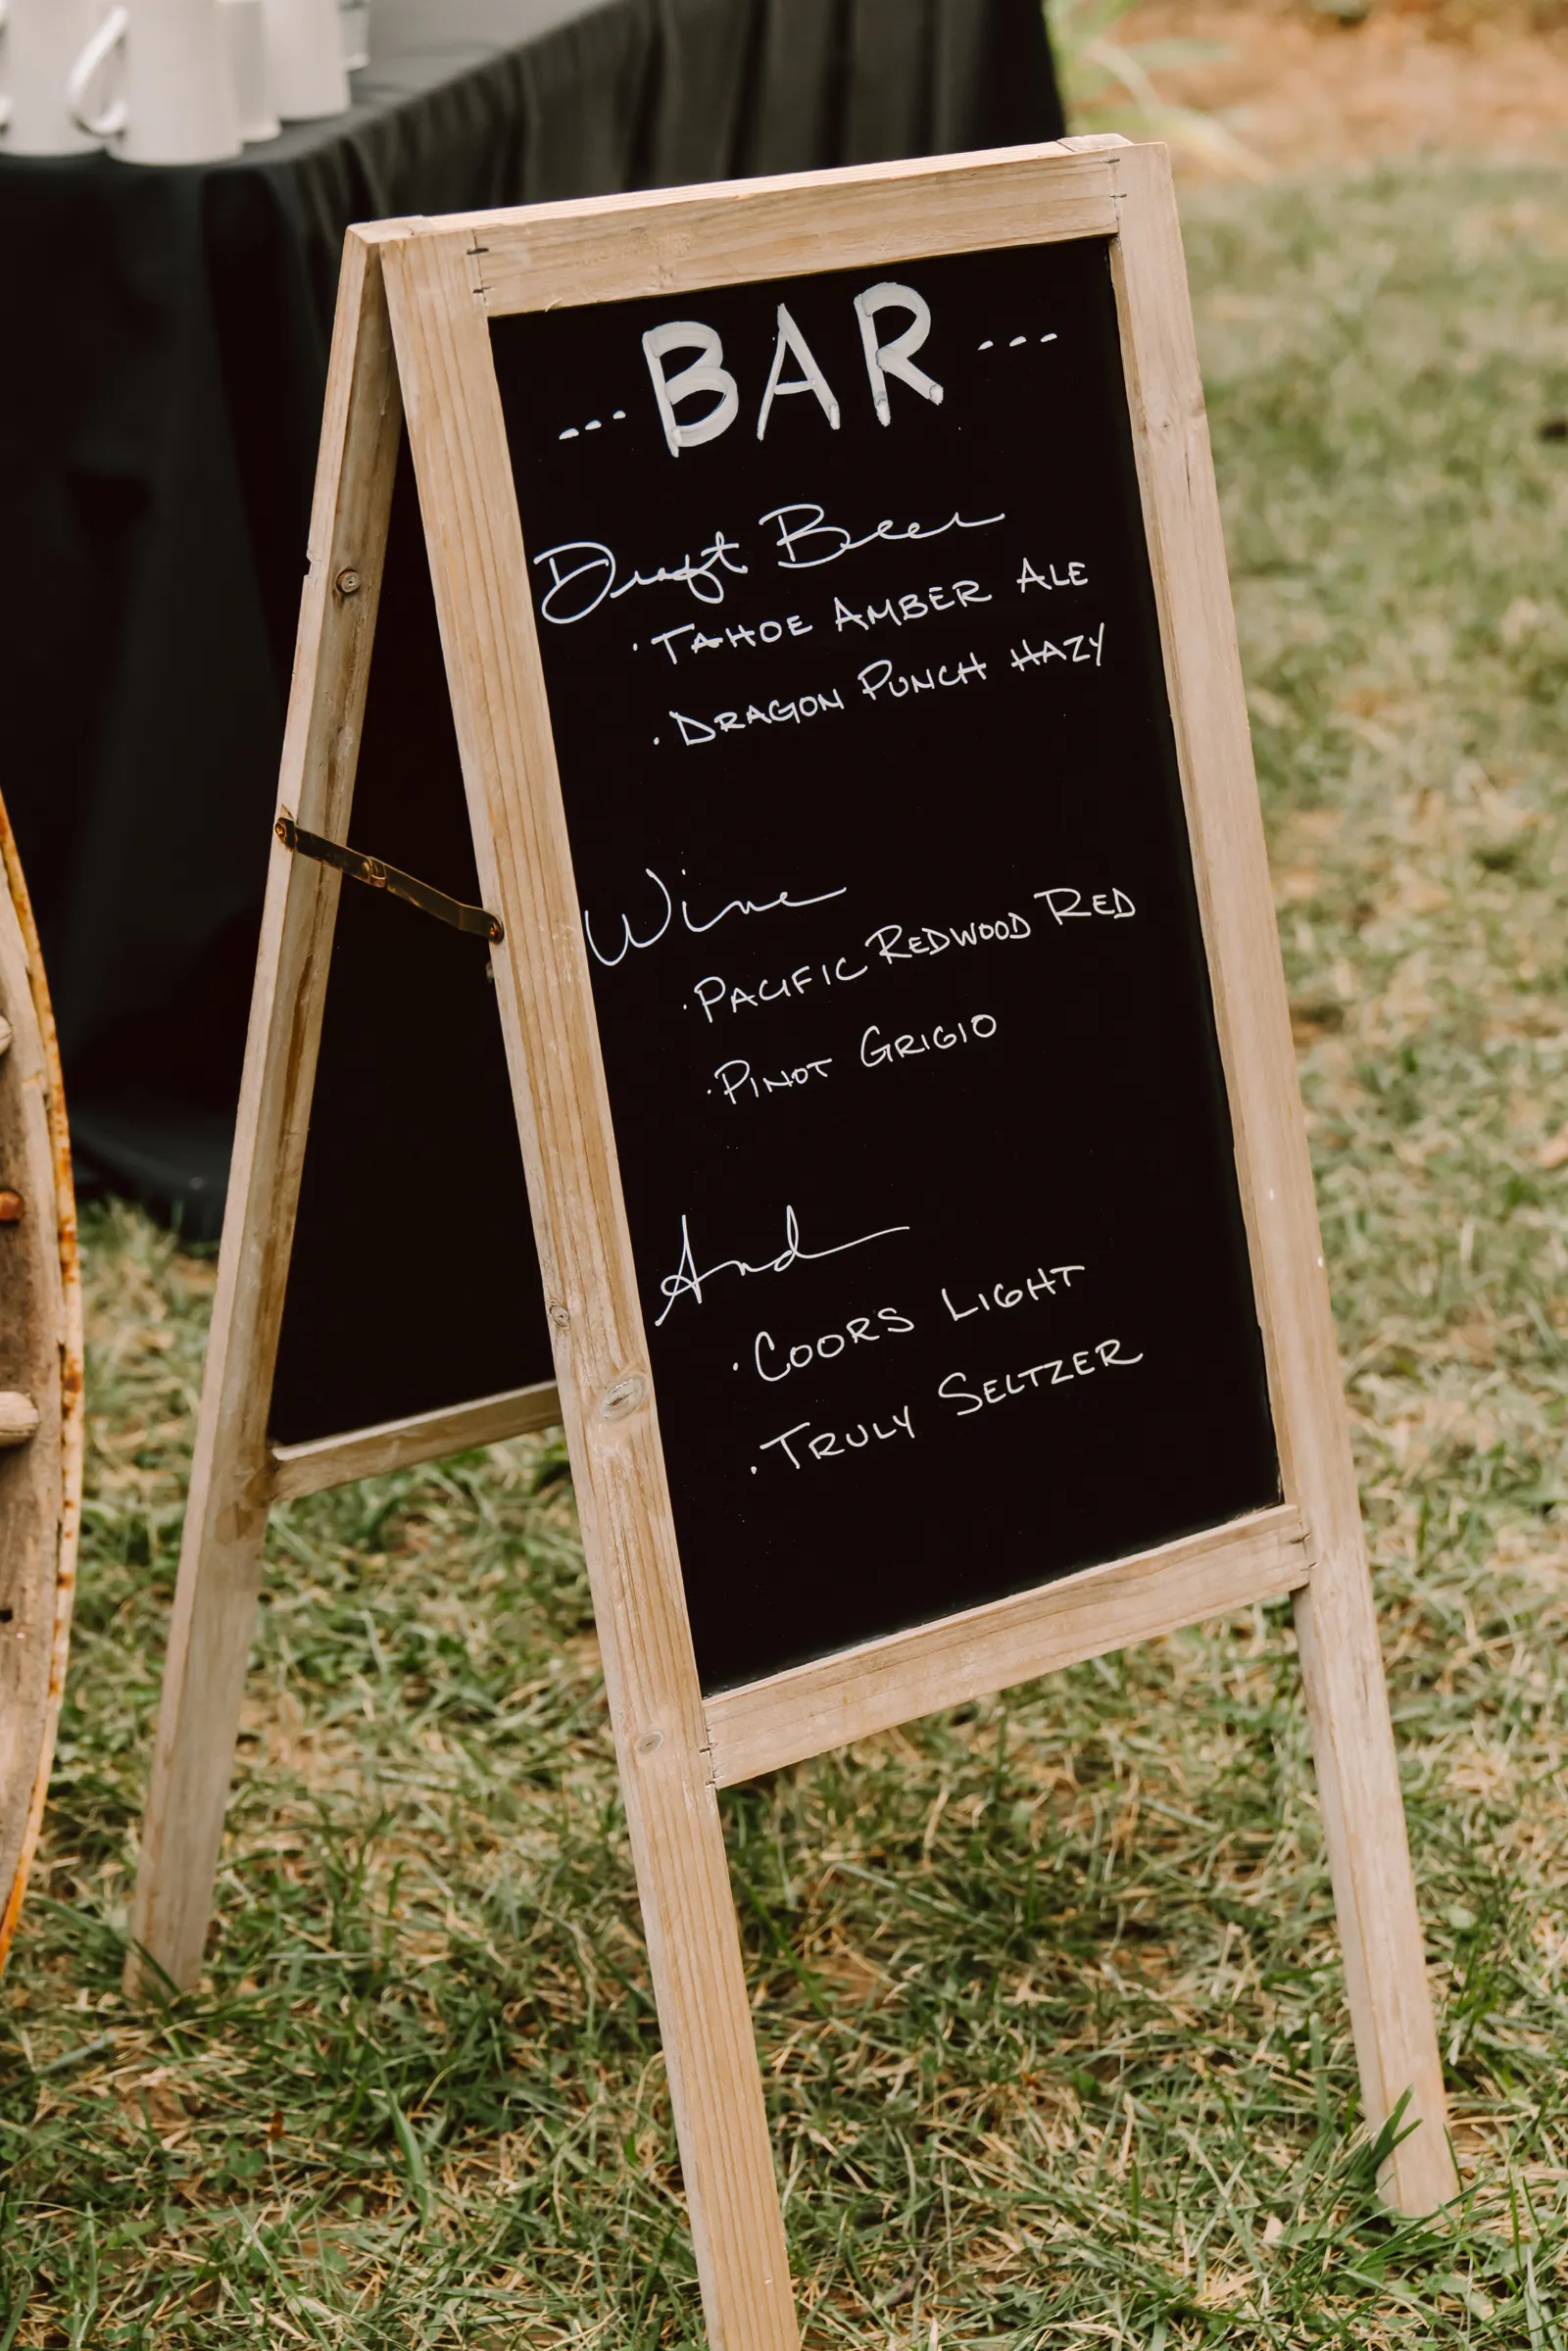 --- BAR ---
Draft Beer
· TAHOE AMBER ALE
· DRAGON PUNCH HAZY
Wine
· PACIFIC REDWOOD RED
· PINOT GRIGIO
And
· COORS LIGHT
· TRULY SELTZER